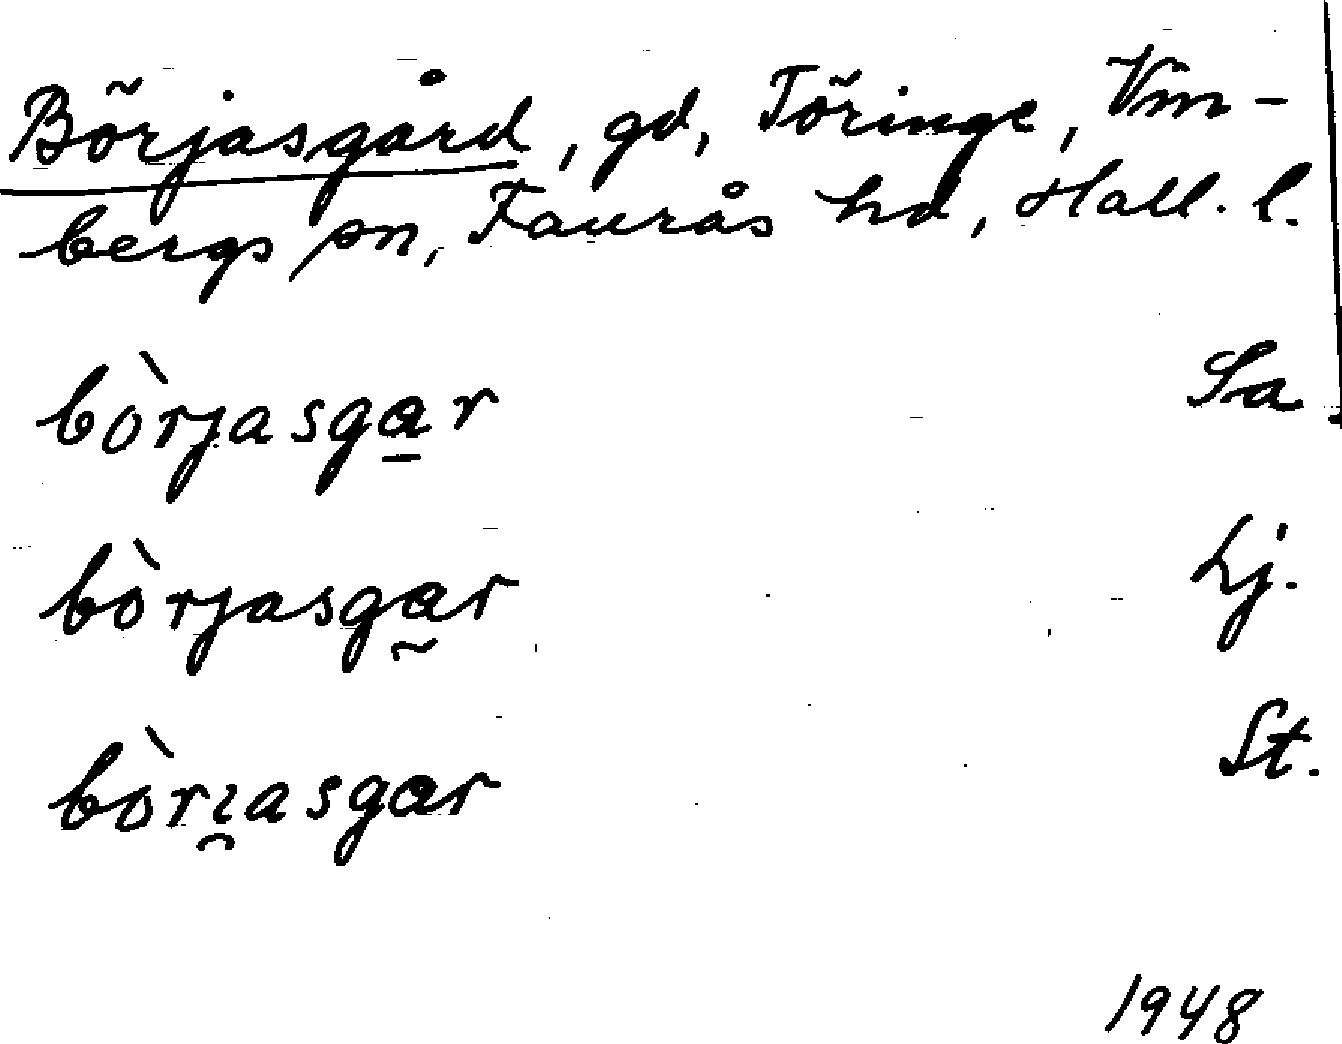 Börjasgård, gd, Töringe, Vm-
bergs sn, Faurås hd, Hall. l.
bòrjasga̲r Sa.
bòrjasga̰r Lj.
bòrı̯asgar St.
1948